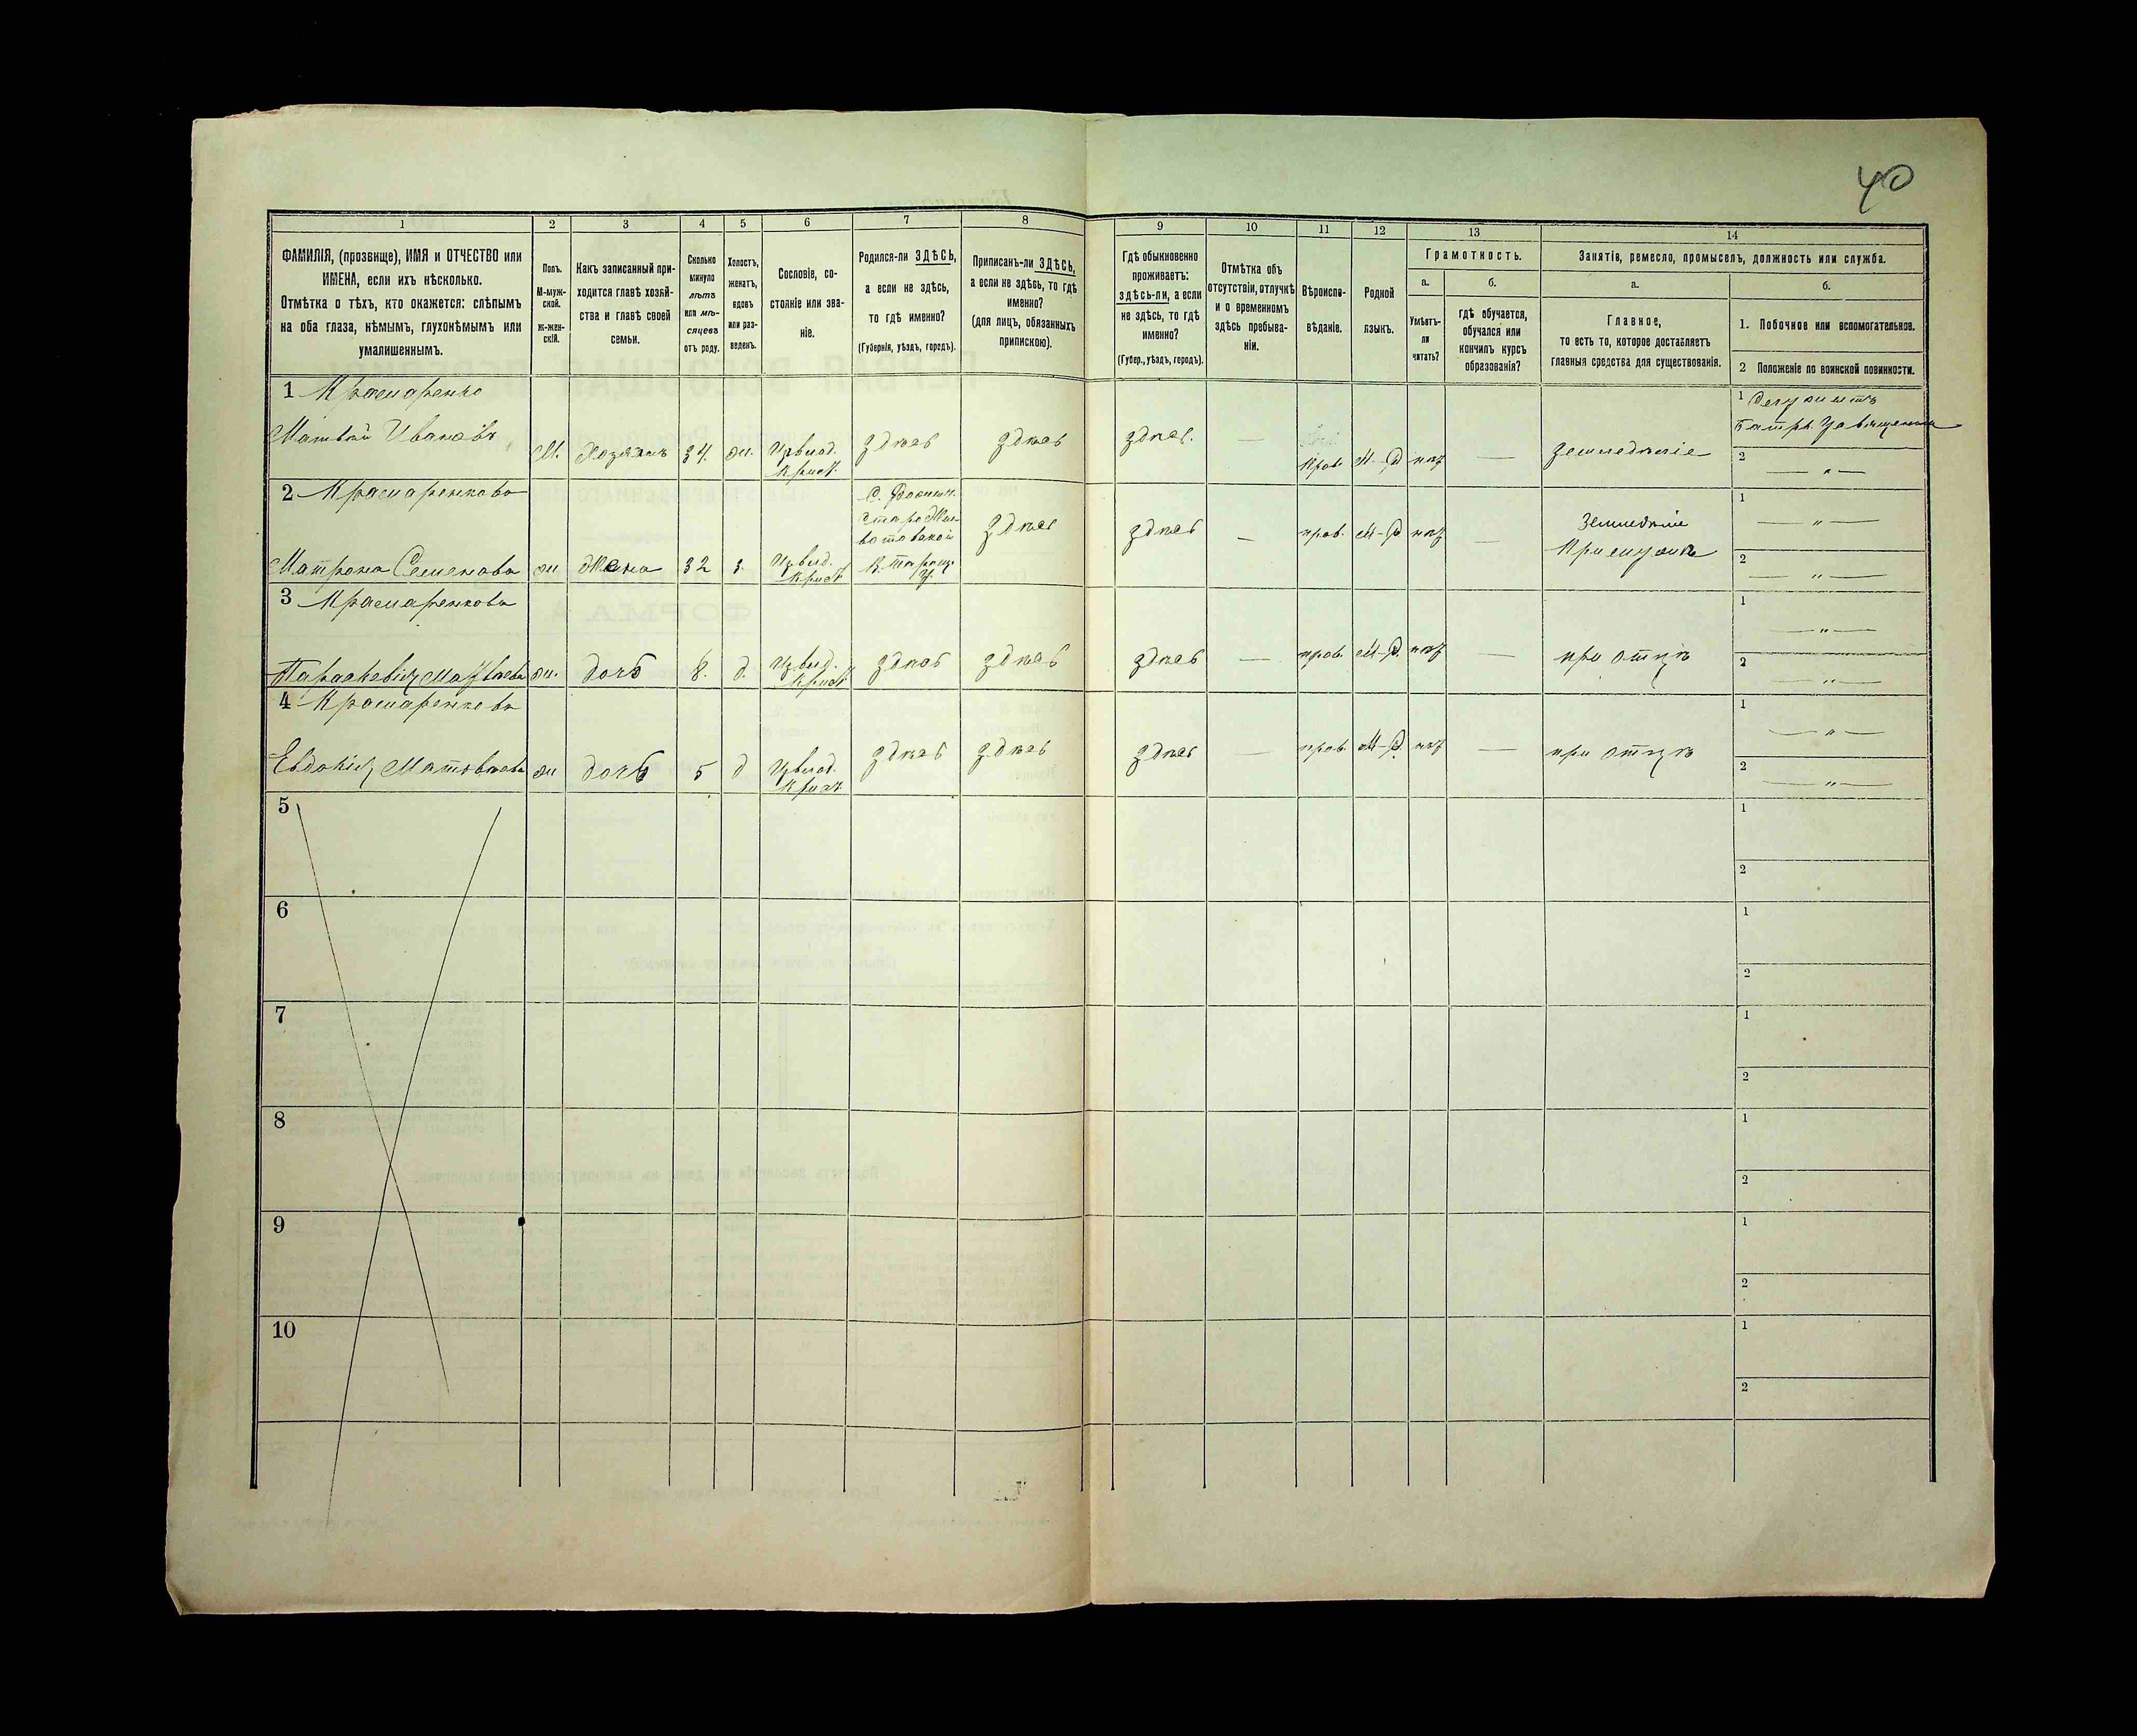 40
1 2 3 4 5 6 7 8 9 10 11 12 13 14
ФАМИЛІЯ, (прозвище), ИМЯ и ОТЧЕСТВО или
ИМЕНА, если ихъ нѣсколько.
Отмѣтка о тѣхъ, кто окажется: слѣпымъ
на оба глаза, нѣмымъ, глухонѣмымъ или
умалишеннымъ.
Полъ.
М-муж-
ской.
Ж-жен-
скій.
Какъ записанный при-
ходится главѣ хозяй-
ства и главѣ своей
семьи.
Сколько
минуло
лѣтъ
или мѣ-
сяцевъ
отъ роду.
Холостъ,
женатъ,
вдовъ
или раз-
веденъ.
Сословіе, со-
стояніе или зва-
ніе.
Родился-ли ЗДѢСЬ,
а если не здѣсь,
то гдѣ именно?
(Губернія, уѣздъ, городъ).
Приписанъ-ли ЗДѢСЬ,
а если не здѣсь, то гдѣ
именно?
(для лицъ, обязанныхъ
припискою).
Гдѣ обыкновенно
проживаетъ:
здѣсь-ли, а если
не здѣсь, то гдѣ
именно?
(Губер., уѣздъ, городъ).
Отмѣтка объ
отсутствіи, отлучкѣ
и о временномъ
здѣсь пребыва-
ніи.
Вѣроиспо-
вѣданіе.
Родной
языкъ.
Грамотность.
а.
Умѣетъ-
ли
читать?
б.
гдѣ обучается,
обучался или
кончилъ курсъ
образованія?
Занятіе, ремесло, промыселъ, должность или служба.
а.
Главное,
то есть то, которое доставляетъ
главныя средства для существованія.
б.
1. Побочное или вспомогательное.
2 Положеніе по воинской повинности.
1 Крамаренко
Матвѣй Ивановъ
М. Хозяинъ 34. ж. здѣсь здѣсь здѣсь. — прав. М-Р нѣт Земледѣліе
1
2 — „ —
2 Крамаренкова
Матрона Семенова ж Жена 32 з. здѣсь здѣсь — прав. М-Р нѣт — Земледѣліе
при мужѣ
1 — „ —
2 — „ —
3 Крамаренкова
Параскевія Матвѣева ж. дочь 8. д. здѣсь здѣсь здѣсь — прав. М-Р. нѣт — при отцѣ
1 — „ —
2 — „ —
4 Крамаренкова
Евдокія Матвѣева ж дочь 5 д здѣсь здѣсь здѣсь — прав. М-Р. нѣт — при отцѣ
1 — „ —
2 — „ —
5 1
2
6 1
2
7 1
2
8 1
2
9 1
2
10 1
2